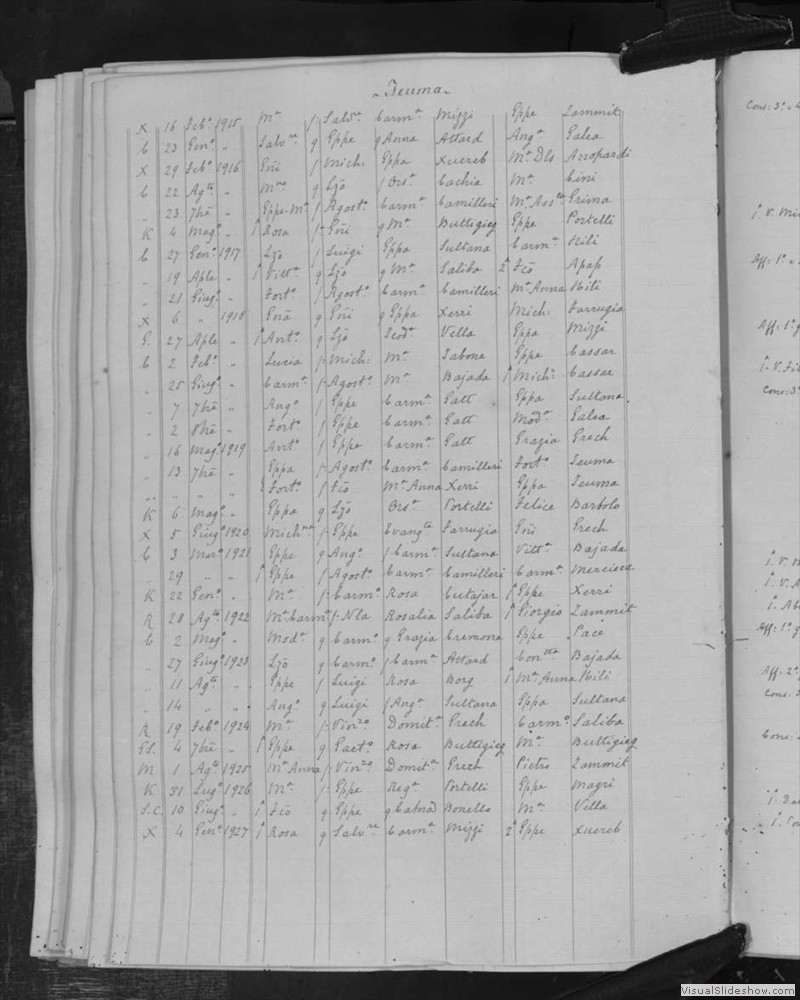 Teuma
X 16 Feb.º 1915 Mª f. Salv.e Carmª Mizzi Eppe Zammit
C 23 Gen.º „ Salv.re g Eppe g Anna Attard Angª Galea
X 29 Feb.º 1916 Giñi f Mich: Eppa Xuereb Mª Dls Azzopardi
C 22 Ag.to „ g Lzõ f Orsª Cachia Mª Cini
„ 23 7bre „ Eppe-Mª f Agost.º Carmª Camilleri Mª Ass.ta Grima
K 4 Mag.º „ 1 Rosa f. Giñi g Mª Buttigieg Eppe Portelli
C 27 Gen.º 1917 Lzõ f Luigi Eppa Sultana Carmª Hili
„ 19 Aple „ 1 Vittª g Lzõ g Mª Saliba 2 Fcõ Apap
„ 21 Giug.º „ Fort.º f Agost.º Carmª Camilleri Mª Anna Hili
X 6 „ 1918 g Giñi g Eppa Xerri Mich: Farrugia
G. 27 Aple „ 1 Ant.º g Lzõ Teodª Vella Eppa Mizzi
C 2 Feb.º „ Lucia f. Mich: Mª Sabona Eppe Cassar
„ 25 Giug.º „ Carmª f. Agost.º Mª Bajada 1 Mich: Cassar
„ 7 7bre „ Ang.º f Eppe Carmª Gatt Eppa Sultana
„ 2 8bre „ Fort.º f Eppe Carmª Gatt Modª Galea
„ 16 Mag.º 1919 Ant.º f Eppe Carmª Gatt Grazia Grech
„ 13 7bre „ Eppa f. Agost.º Carmª Camilleri Fort.º Teuma
„ „ „ „ Fort.º f Fcõ Mª Anna Xerri Eppa Teuma
K 6 Mag.º „ Eppa g Lzõ Orsª Portelli Felice Bartolo
X 5 Giug.º 1920 Mich.na f. Eppe Evang.ta Farrugia Giñi Grech
C 3 Mar.º 1921 Eppe g Ang.º f Carmª Sultana Vittª Bajada
„ 29 „ „ 1 Eppe f Agost.º Carmª Camilleri Carmª Mercieca
K 22 Gen.º „ Mª f. Carm.º Rosa Cutajar 1 Eppe Xerri
R 28 Ag.to 1922 Mª Carmª f. Nla Rosalia Saliba 1 Giorgio Zammit
C 2 Mag.º „ Modª g Carm.º g Grazia Cremona Eppe Pace
„ 27 Giug.º 1923 Lzõ g Carm.º f Carmª Attard Con.tta Bajada
„ 11 Ag.to „ Eppe f Luigi Rosa Borg 1 Mª Anna Hili
„ 14 „ „ Ang.º g Luigi f Angª Sultana Eppa Sultana
R 19 Feb.º 1924 Mª f. Vin.zo Domit.ª Grech Carm.º Saliba
G.S. 4 7bre „ 1 Eppe g Gaet.º Rosa Buttigieg Mª Buttigieg
M 1 Ag.to 1925 Mª Anna f. Vin.zo Domit.ª Grech Pietro Zammit
K 31 Lug.º 1926 Mª f. Eppe Regª Portelli Eppe Magri
S.C. 10 Giug.º „ 1 Fcõ g Eppe g Catna Bonello Mª Vella
X 4 Gen.º 1927 1 Rosa g Salv.re Carmª Mizzi 2 Eppe Xuereb
Cons: 3º
1. V. Mi
Aff: 1º
Aff: 1º g
1. V. Fil
Cons: 3º
1. V. M
1. V. A
1. Ab
Aff: 1º g
Aff: 2º
Cons. 3
Cons:
VisualSlideshow.com